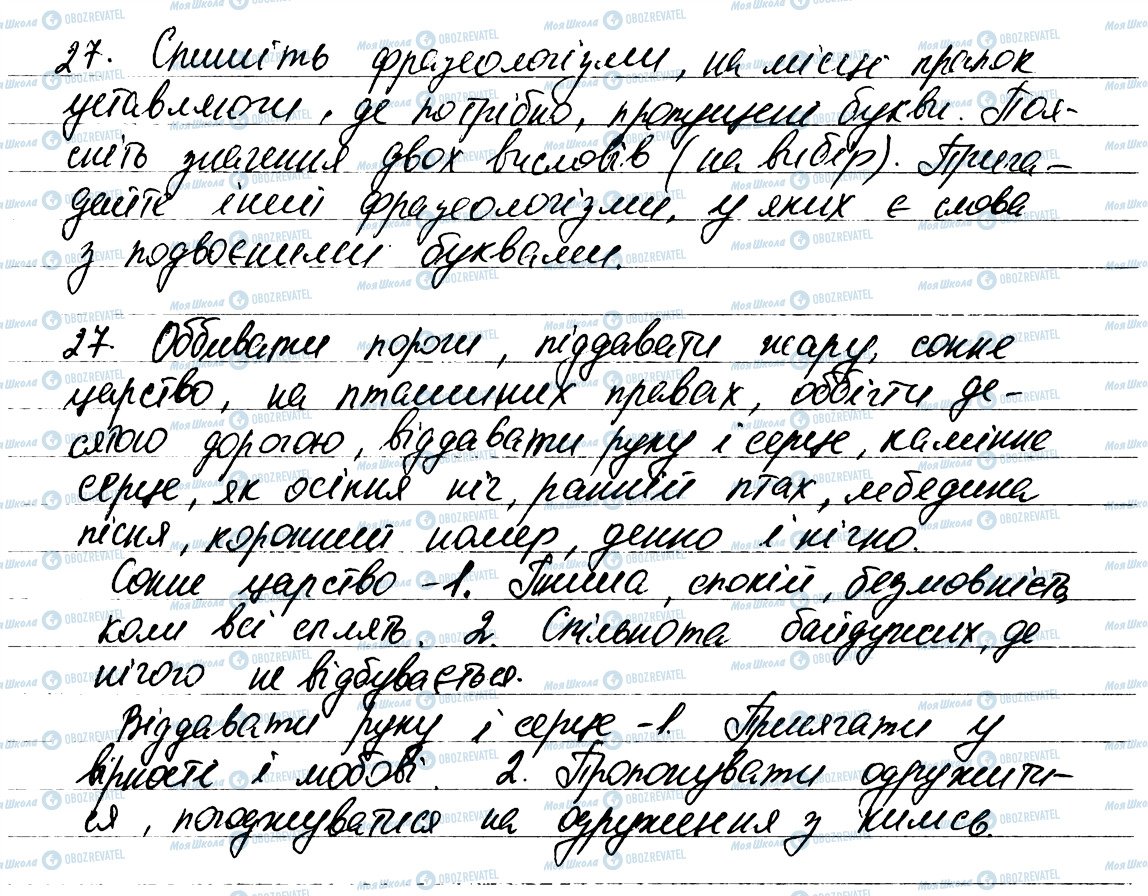 27. Спишіть фразеологізми, на місці крапок
уставляючи, де потрібно, пропущені букви. Поя-
сніть значення двох висловів (на вибір). Прига-
дайте інші фразеологізми, у яких є слова
з подвоєними буквами.
27. Оббивати пороги, піддавати жару, сонне
царство, на пташиних правах, оббігти де-
сятою дорогою, віддавати руку і серце, камінне
серце, як осіння ніч, ранній птах, лебедина
пісня, коронний номер, денно і нічно.
Сонне царство - 1. Тиша, спокій, безмовність,
коли всі сплять. 2. Спільнота байдужих, де
нічого не відбувається.
Віддавати руку і серце - 1. Присягати у
вірності і любові. 2. Пропонувати одружити-
ся, погоджуватися на одруження з кимсь.